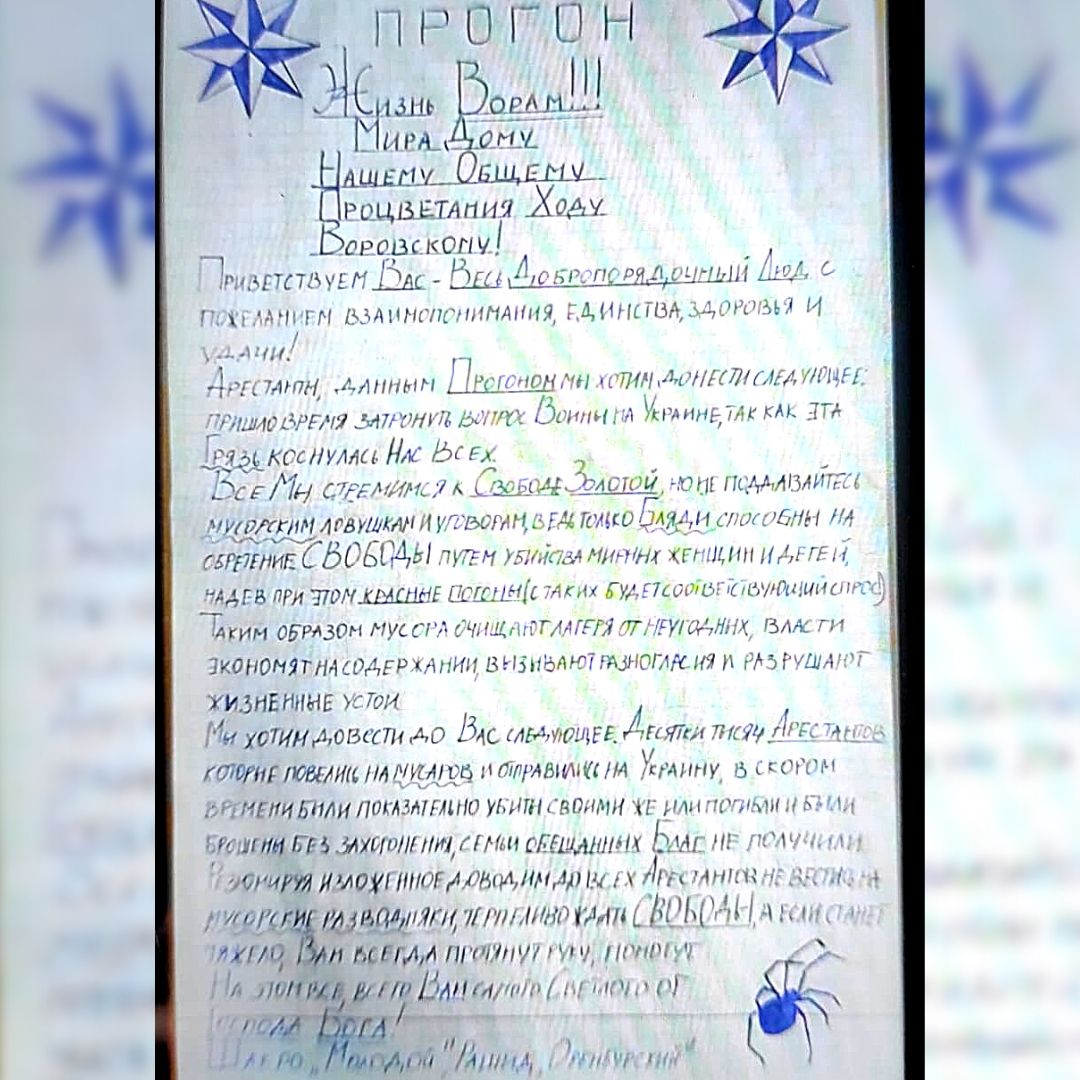 ПРОГОН
Жизнь Ворам!!!
Мира Дому
Нашему Общему
Процветания Ходу
Воровскому!
Приветствуем Вас - Весь Добропорядочный Люд, с
пожеланием взаимопонимания, единства, здоровья и
удачи!
Арестанты, данным Прогоном мы хотим донести следующее:
пришло время затронуть вопрос Войны на Украине, так как эта
Грязь коснулась Нас Всех.
Все Мы стремимся к Свободе Золотой, но не поддавайтесь
мусорским ловушкам и уговорам, ведь только Бляди способны на
обретение СВОБОДЫ путем убийства мирных женщин и детей,
надев при этом красные погоны (с таких будет соответствующий спрос)
Таким образом мусора очищают лагеря от неугодных, власти
экономят на содержании, вызывают разногласия и разрушают
жизненные устои
Мы хотим довести до Вас следующее. Десятки тысяч Арестантов
которые повелись на мусаров и отправились на Украину, в скором
времени были показательно убиты своими же или погибли и были
брошены без захоронения, семьи обещанных Благ не получили
Резюмируя изложенное доводим до всех Арестантов не вестись на
мусорские разводняки, терпеливо ждать СВОБОДЫ, а если станет
тяжело, Вам всегда протянут руку, помогут
На этом все, всего Вам самого Светлого от
Господа Бога!
Шакро „Молодой" "Рашид Оренбурский"